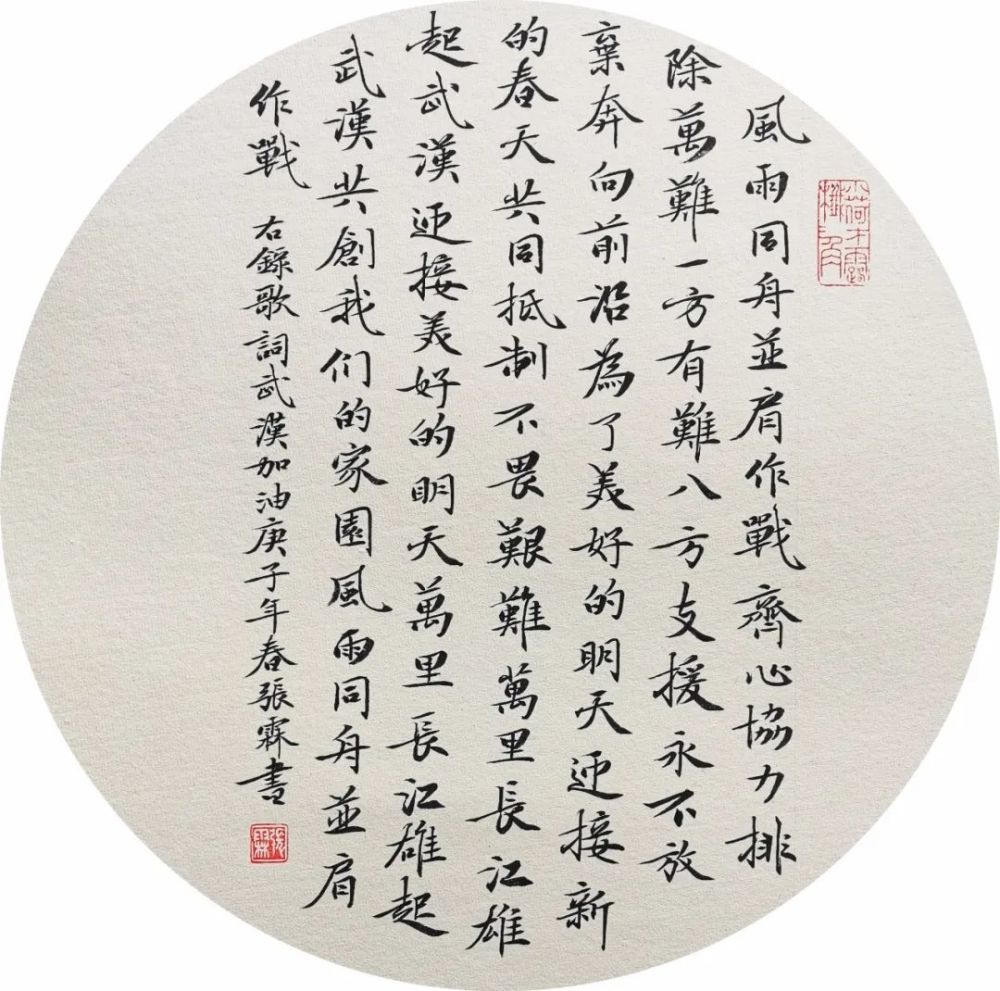 風雨同舟並肩作戰齊心協力排
除萬難一方有難八方支援永不放
棄奔向前沿為了美好的明天迎接新
的春天共同抵制不畏艱難萬里長江雄
起武漢迎接美好的明天萬里長江雄起
武漢共創我们的家園風雨同舟並肩
作戰
右錄歌詞武漢加油庚子年春張霖書
張霖